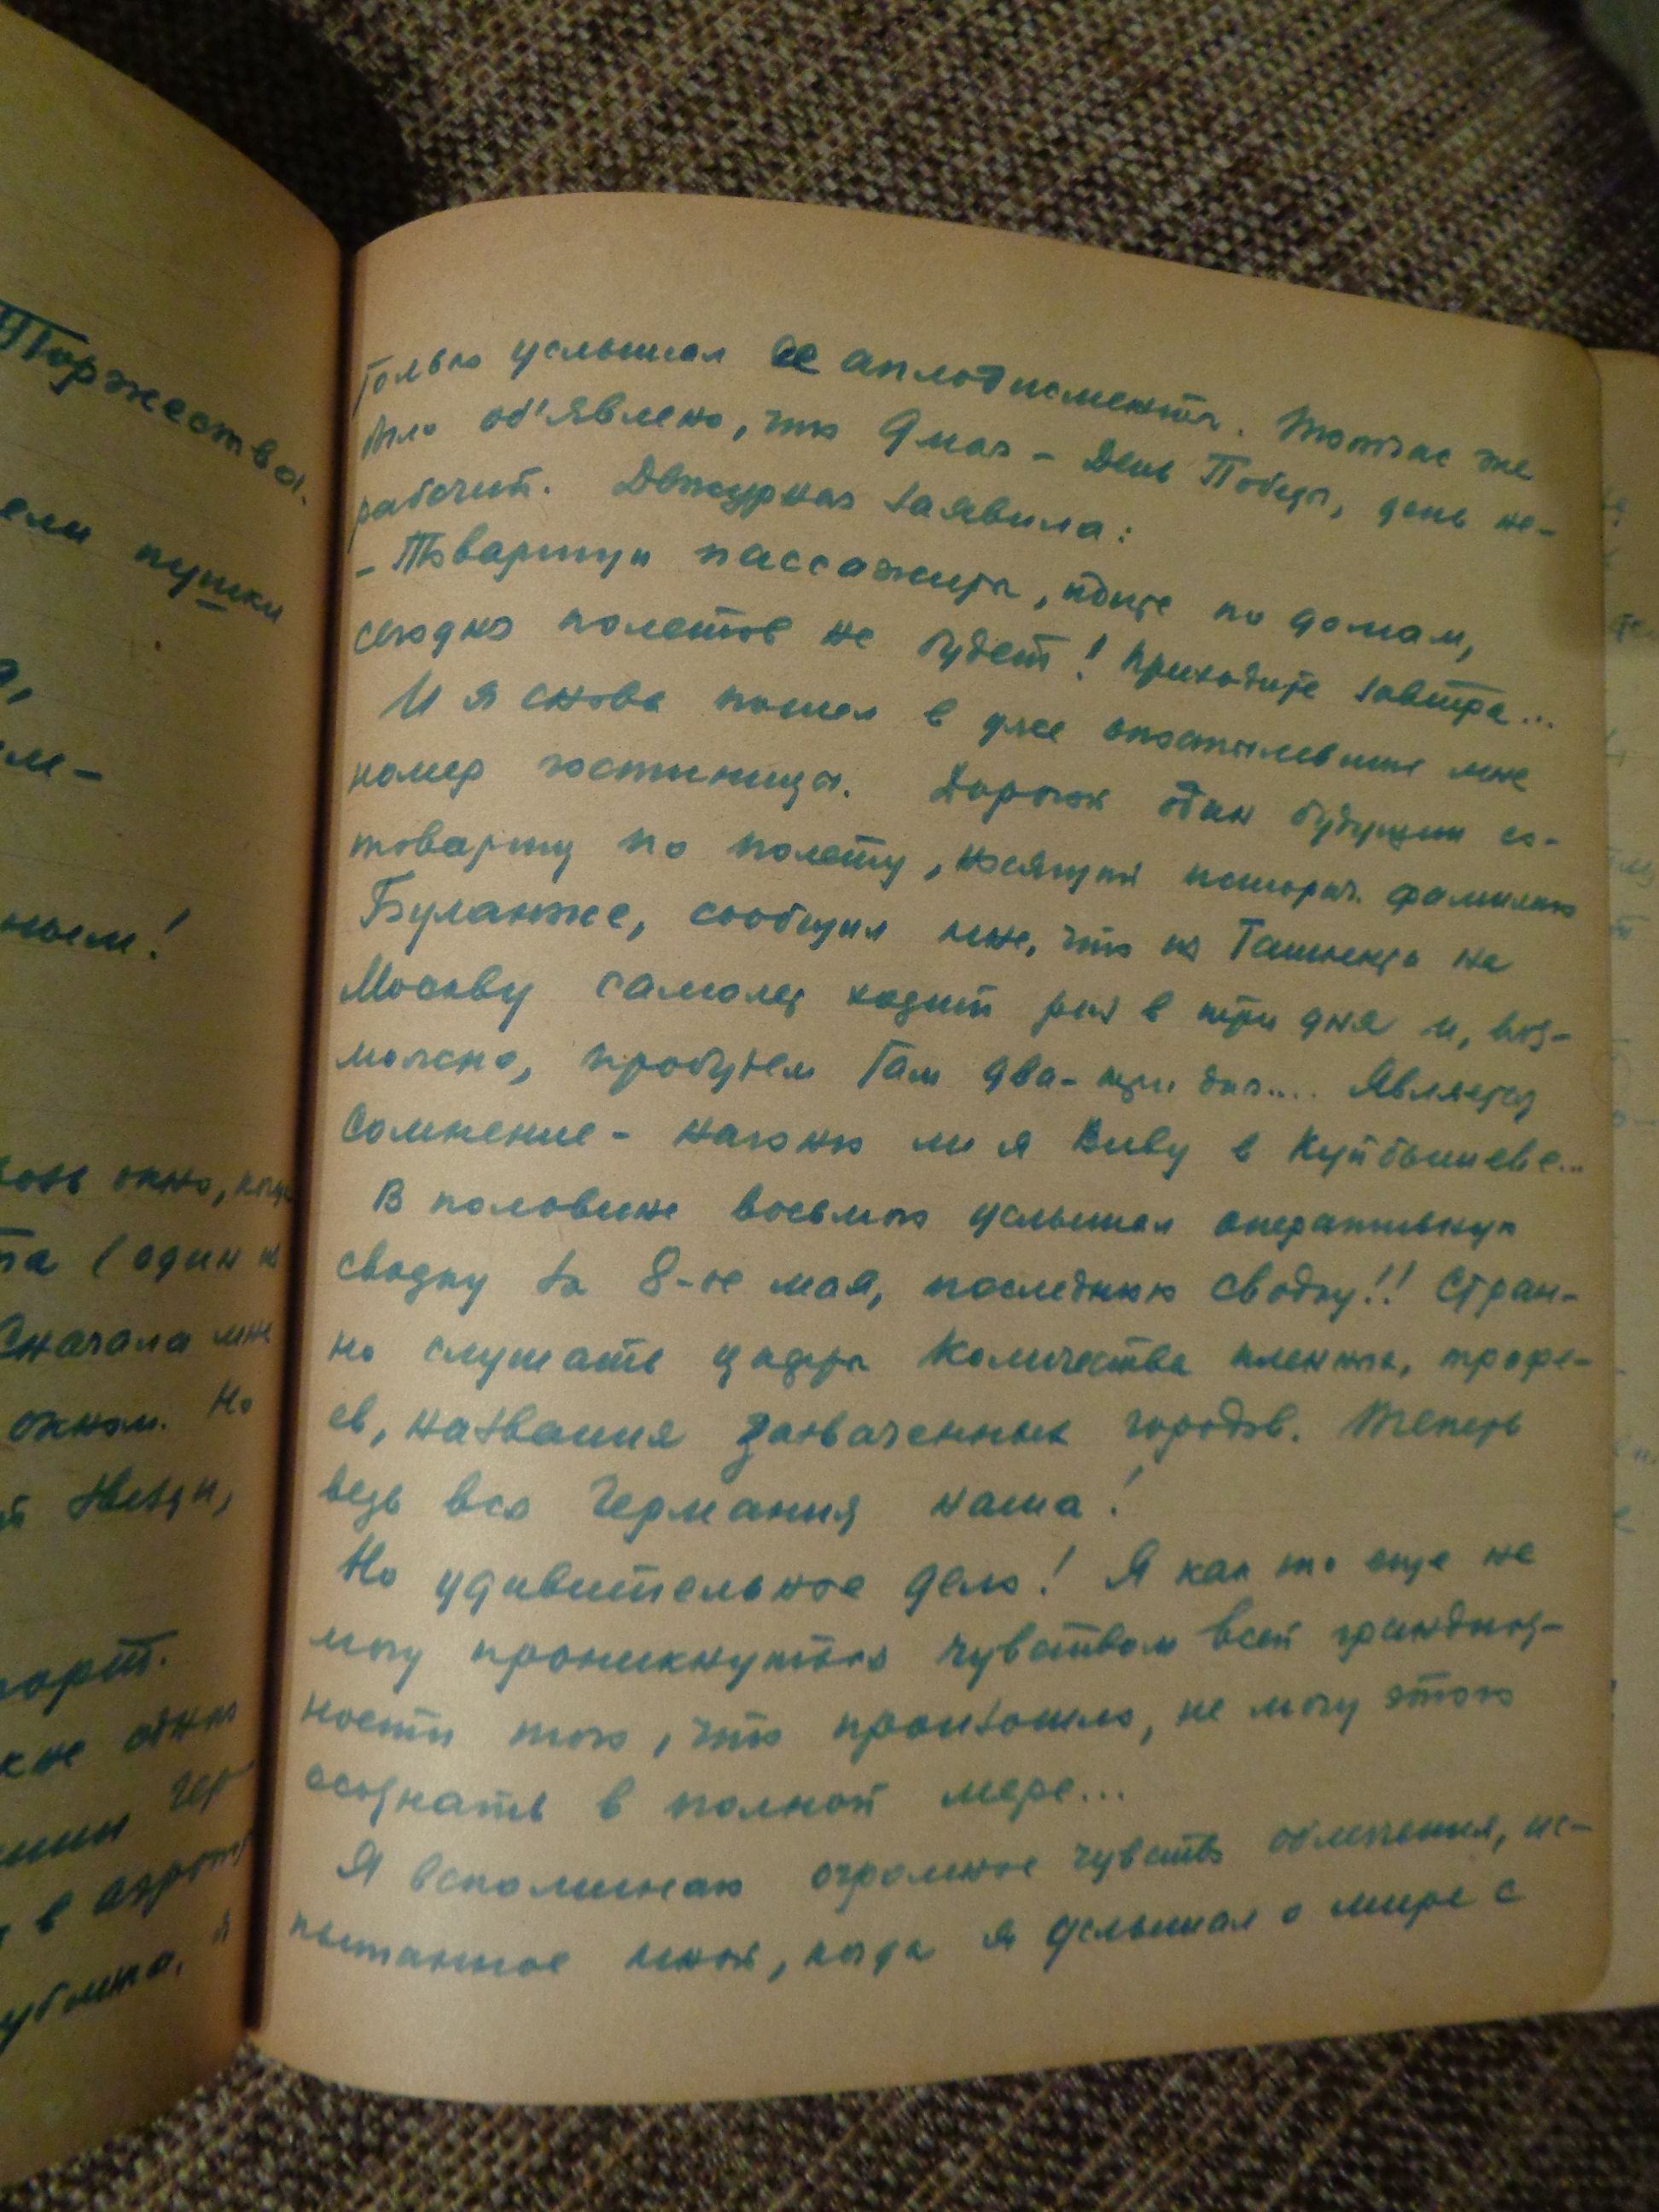 Торжества.
ели пушки
а,
ем-
ньем!
возь окно, когда
та (один из
Сначала мне
окном. Но
й звезды,
порт.
же одного
Гер-
в аэропорт
Я
только услышал ее аплодисменты. Тотчас же
было об'явлено, что 9 мая - День Победы, день не-
рабочий. Дежурная заявила:
- Товарищи пассажиры, идите по домам,
сегодня полетов не будет! Приходите завтра...
И я снова пошел в уже опостылевший мне
номер гостиницы. Дорогой один будущий со-
товарищ по полету, носящий историч. фамилию
Буланже, сообщил мне, что из Ташкента на
Москву самолет ходит раз в три дня и, воз-
можно, пробудем там два-три дня.... Является
сомнение - нагоню ли я Виву в Куйбышеве...
В половине восьмого услышал оперативную
сводку за 8-ое мая, последнюю сводку!! Стран-
но слушать цифры количества пленных, трофе-
ев, названия захваченных городов. Теперь
ведь вся Германия наша!
Но удивительное дело! Я как то еще не
могу проникнуться чувством всей грандиоз-
ности того, что произошло, не могу этого
осознать в полной мере...
Я вспоминаю огромное чувство облегчения, ис-
пытанное мной, когда я услышал о мире с